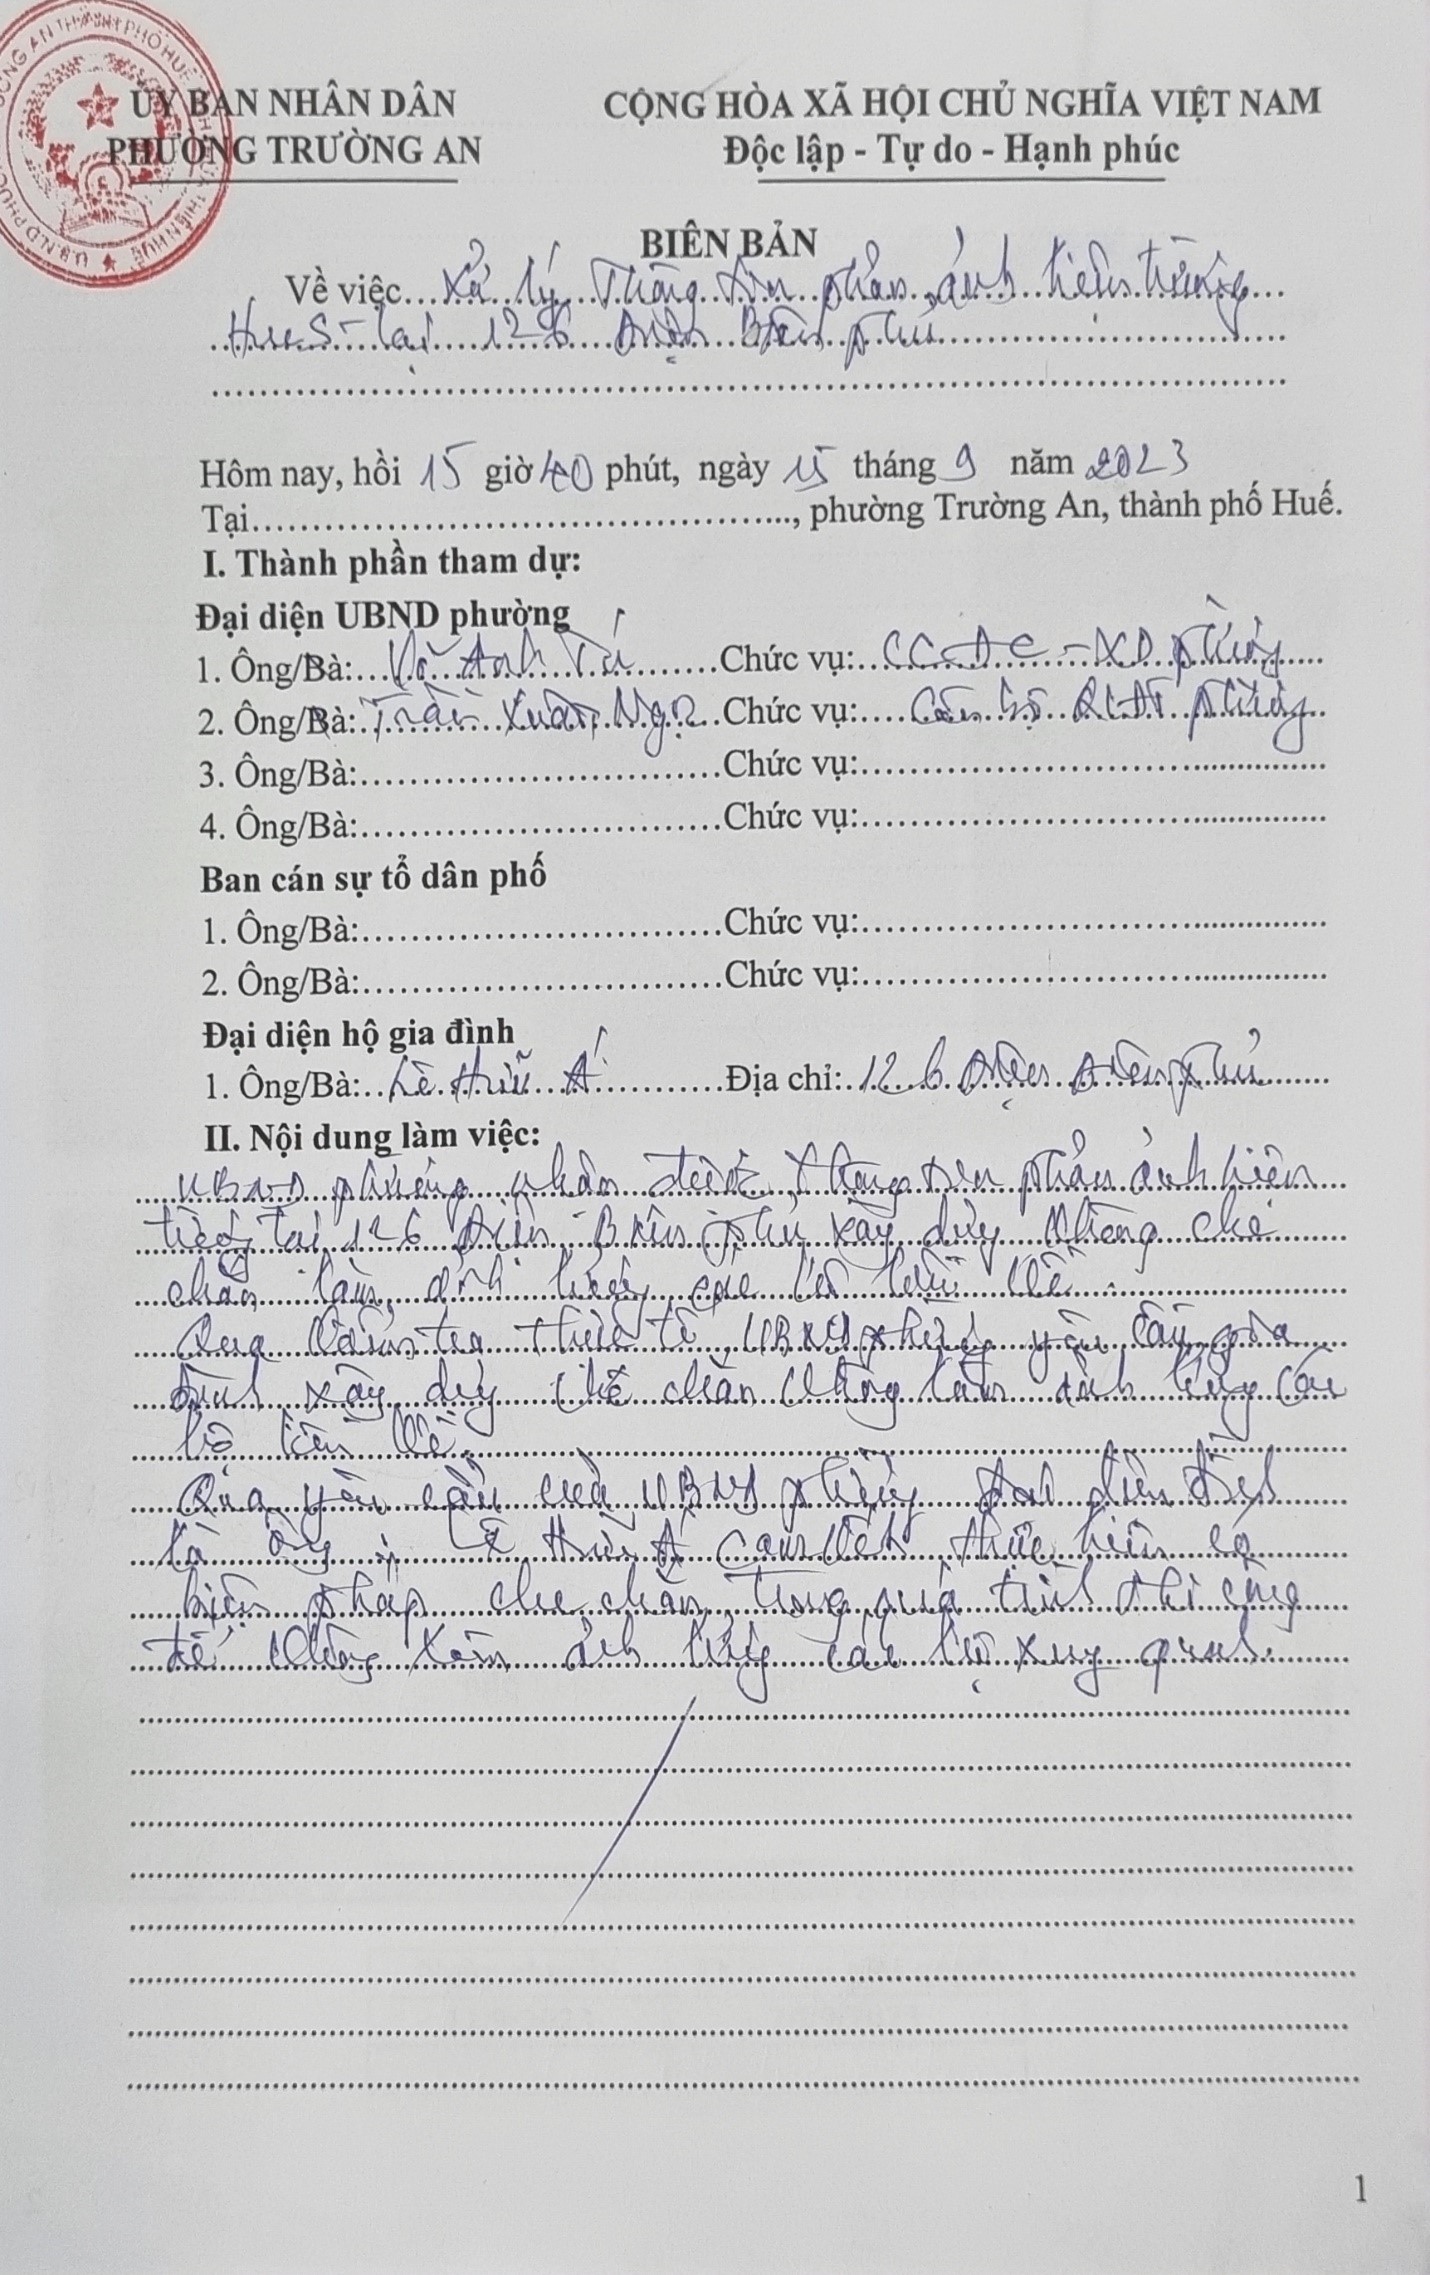 ỦY BAN NHÂN DÂN
PHƯỜNG TRƯỜNG AN
CỘNG HÒA XÃ HỘI CHỦ NGHĨA VIỆT NAM
Độc lập - Tự do - Hạnh phúc
BIÊN BẢN
Về việc...Xử lý Thông tin phản ánh hiện trường...
HueS - tại 126 Điện Biên phủ
Hôm nay, hồi 15 giờ 40 phút, ngày 15 tháng 9 năm 2023
Tại..............., phường Trường An, thành phố Huế.
I. Thành phần tham dự:
Đại diện UBND phường
1. Ông/Bà:...Võ Anh Tú.......Chức vụ:...CC ĐC - XD phường
2. Ông/Bà: Trần Xuân Ngọc...Chức vụ:....Cán bộ phường
3. Ông/Bà:...............Chức vụ:...............
4. Ông/Bà:...............Chức vụ:...............
Ban cán sự tổ dân phố
1. Ông/Bà:...............Chức vụ:...............
2. Ông/Bà:...............Chức vụ:...............
Đại diện hộ gia đình
1. Ông/Bà:...Lê Hữu Á...........Địa chỉ:.126 Điện Biên Phủ
II. Nội dung làm việc:
UBND phường nhận được thông tin phản ánh hiện
trường tại 126 Điện Biên Phủ xây dựng không che
chắn làm ảnh hưởng các hộ liền kề.
Qua kiểm tra thực tế UBND phường yêu cầu gia
đình xây dựng che chắn không làm ảnh hưởng các
hộ liền kề.
Qua yêu cầu của UBND phường đại diện
là ông Lê Hữu Á cam kết thực hiện có
biện pháp che chắn trong quá trình thi công
để không làm ảnh hưởng các hộ xung quanh.
1